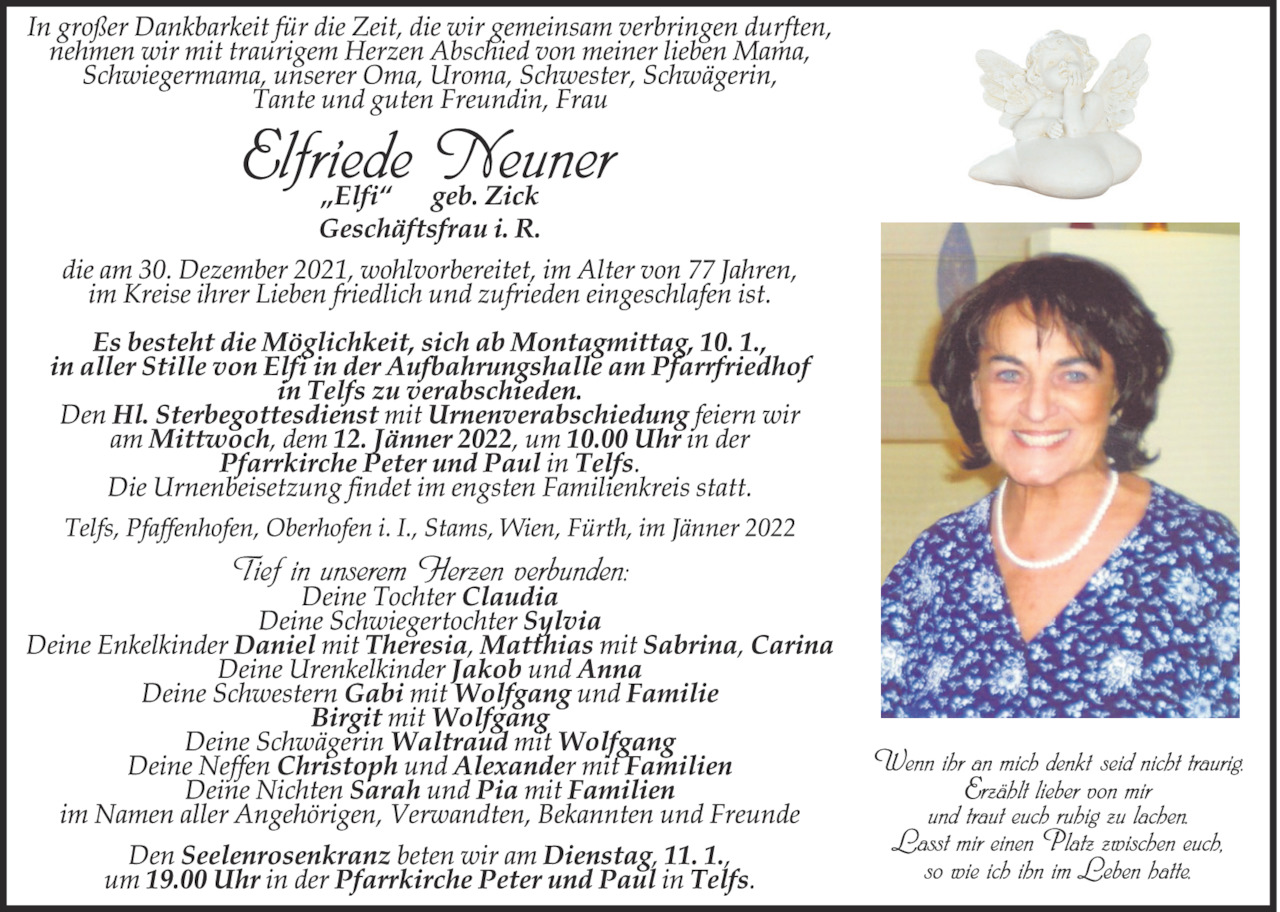 In großer Dankbarkeit für die Zeit, die wir gemeinsam verbringen durften,
nehmen wir mit traurigem Herzen Abschied von meiner lieben Mama,
Schwiegermama, unserer Oma, Uroma, Schwester, Schwägerin,
Tante und guten Freundin, Frau
Elfriede Neuner
„Elfi“ geb. Zick
Geschäftsfrau i. R.
die am 30. Dezember 2021, wohlvorbereitet, im Alter von 77 Jahren,
im Kreise ihrer Lieben friedlich und zufrieden eingeschlafen ist.
Es besteht die Möglichkeit, sich ab Montagmittag, 10. 1.,
in aller Stille von Elfi in der Aufbahrungshalle am Pfarrfriedhof
in Telfs zu verabschieden.
Den Hl. Sterbegottesdienst mit Urnenverabschiedung feiern wir
am Mittwoch, dem 12. Jänner 2022, um 10.00 Uhr in der
Pfarrkirche Peter und Paul in Telfs.
Die Urnenbeisetzung findet im engsten Familienkreis statt.
Telfs, Pfaffenhofen, Oberhofen i. I., Stams, Wien, Fürth, im Jänner 2022
Tief in unserem Herzen verbunden:
Deine Tochter Claudia
Deine Schwiegertochter Sylvia
Deine Enkelkinder Daniel mit Theresia, Matthias mit Sabrina, Carina
Deine Urenkelkinder Jakob und Anna
Deine Schwestern Gabi mit Wolfgang und Familie
Birgit mit Wolfgang
Deine Schwägerin Waltraud mit Wolfgang
Deine Neffen Christoph und Alexander mit Familien
Deine Nichten Sarah und Pia mit Familien
im Namen aller Angehörigen, Verwandten, Bekannten und Freunde
Den Seelenrosenkranz beten wir am Dienstag, 11. 1.,
um 19.00 Uhr in der Pfarrkirche Peter und Paul in Telfs.
Wenn ihr an mich denkt seid nicht traurig.
Erzählt lieber von mir
und traut euch ruhig zu lachen.
Lasst mir einen Platz zwischen euch,
so wie ich ihn im Leben hatte.